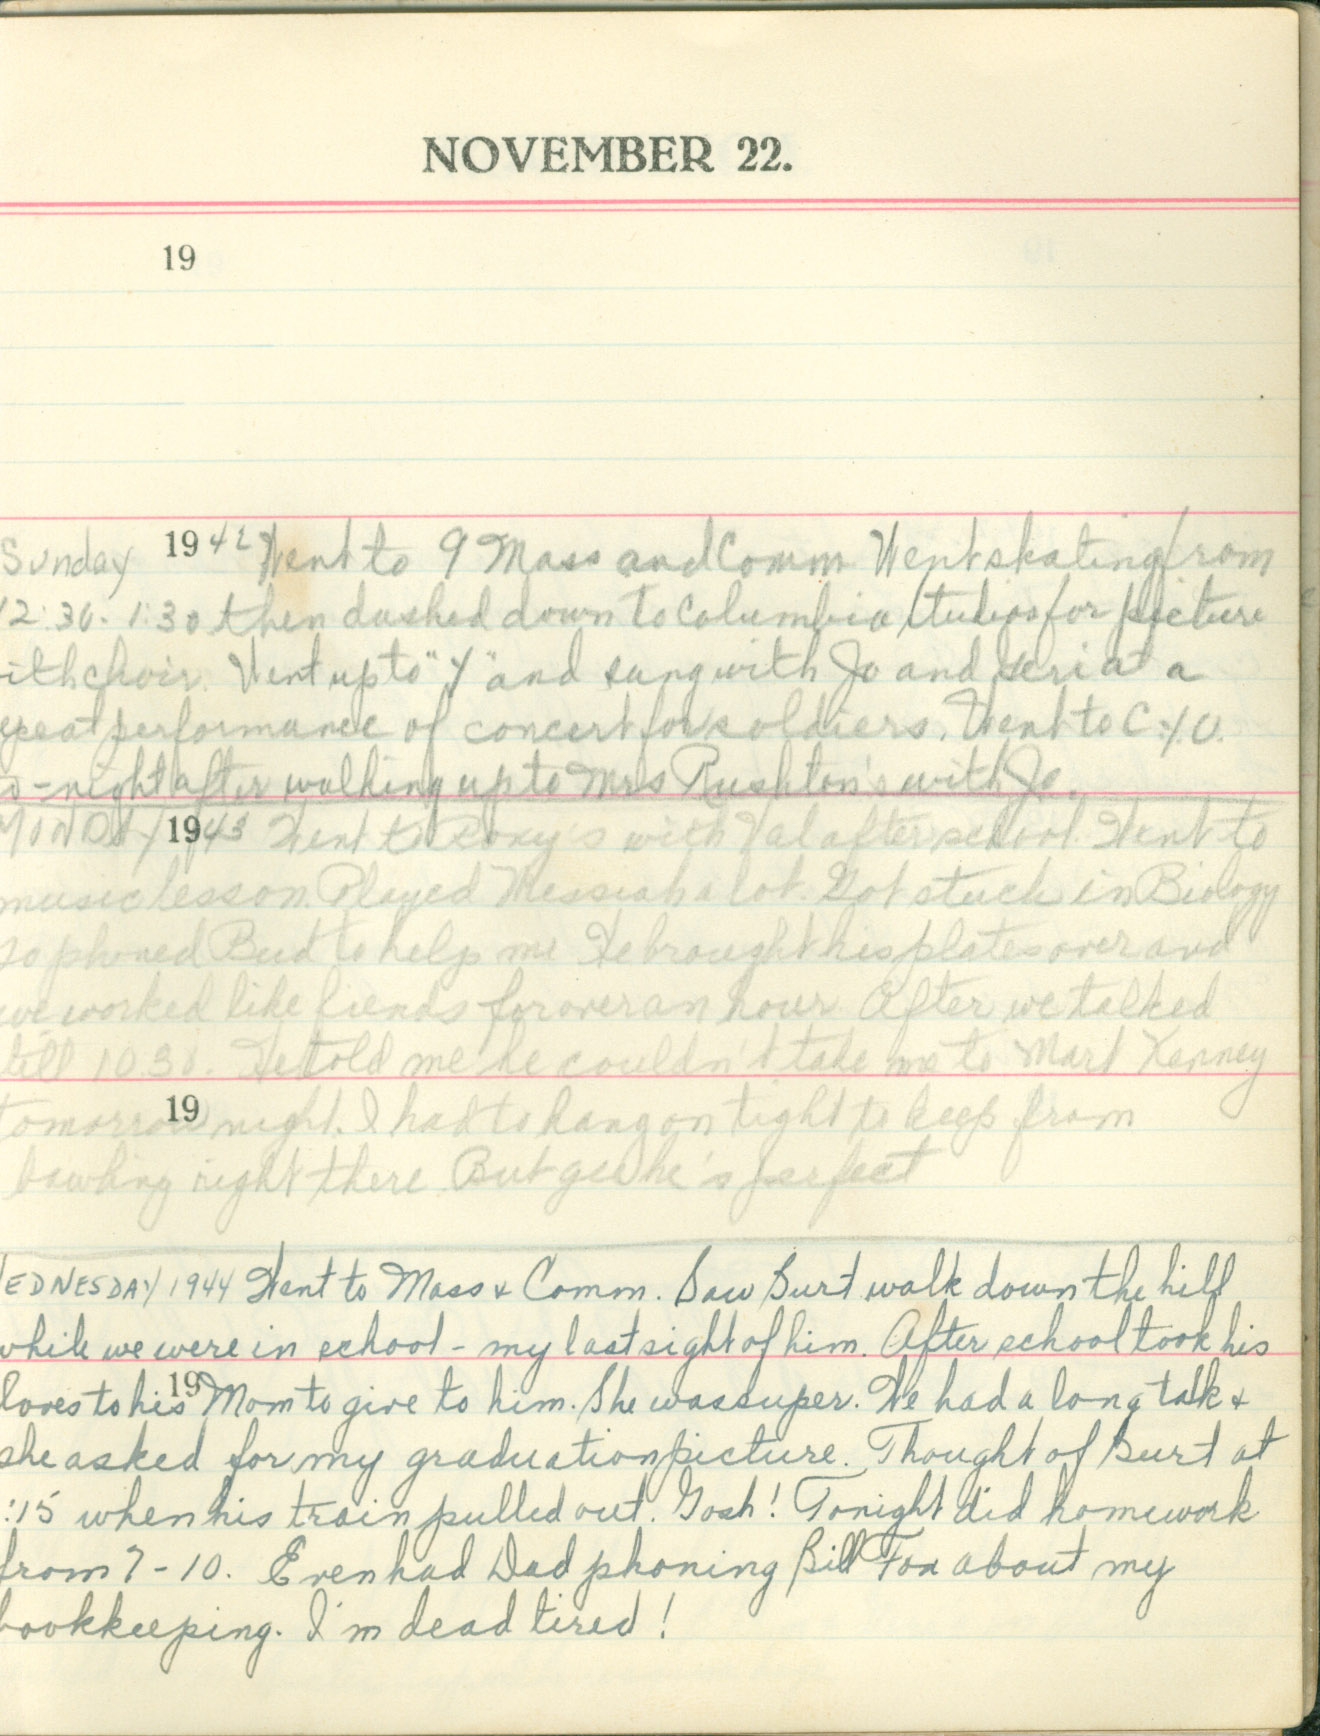 NOVEMBER 22.
19
Sunday 1942 Went to 9 Mass and Comm Went skating from
12:30-1:30 then dashed down to Columbia Studios for picture
ith choir. Went up to "Y" and sang with Jo and Geri at a
epeat performance of concert for soldiers. Went to C.Y.O.
o-night after walking up to Mrs Rushton's with Jo.
MONDAY 1943 Went to Roxy's with Val after school. Went to
music lesson. Played Messiah a lot. Got stuck in Biology
so phoned Bud to help me He brought his plates over and
we worked like fiends for over an hour After we talked
till 10.30. He told me he couldn't take me to Mart Kenney
19
tomorrow night. I had to hang on tight to keep from
bawling right there But gee he's perfect
EDNESDAY 1944 Went to Mass & Comm. Saw Burt walk down the hill
while we were in school - my last sight of him. After school took his
19
loves to his Mom to give to him. She was super. We had a long talk &
she asked for my graduation picture. Thought of Burt at
:15 when his train pulled out. Gosh! Tonight did homework
from 7-10. Even had Dad phoning Bill Fox about my
bookkeeping. I'm dead tired!